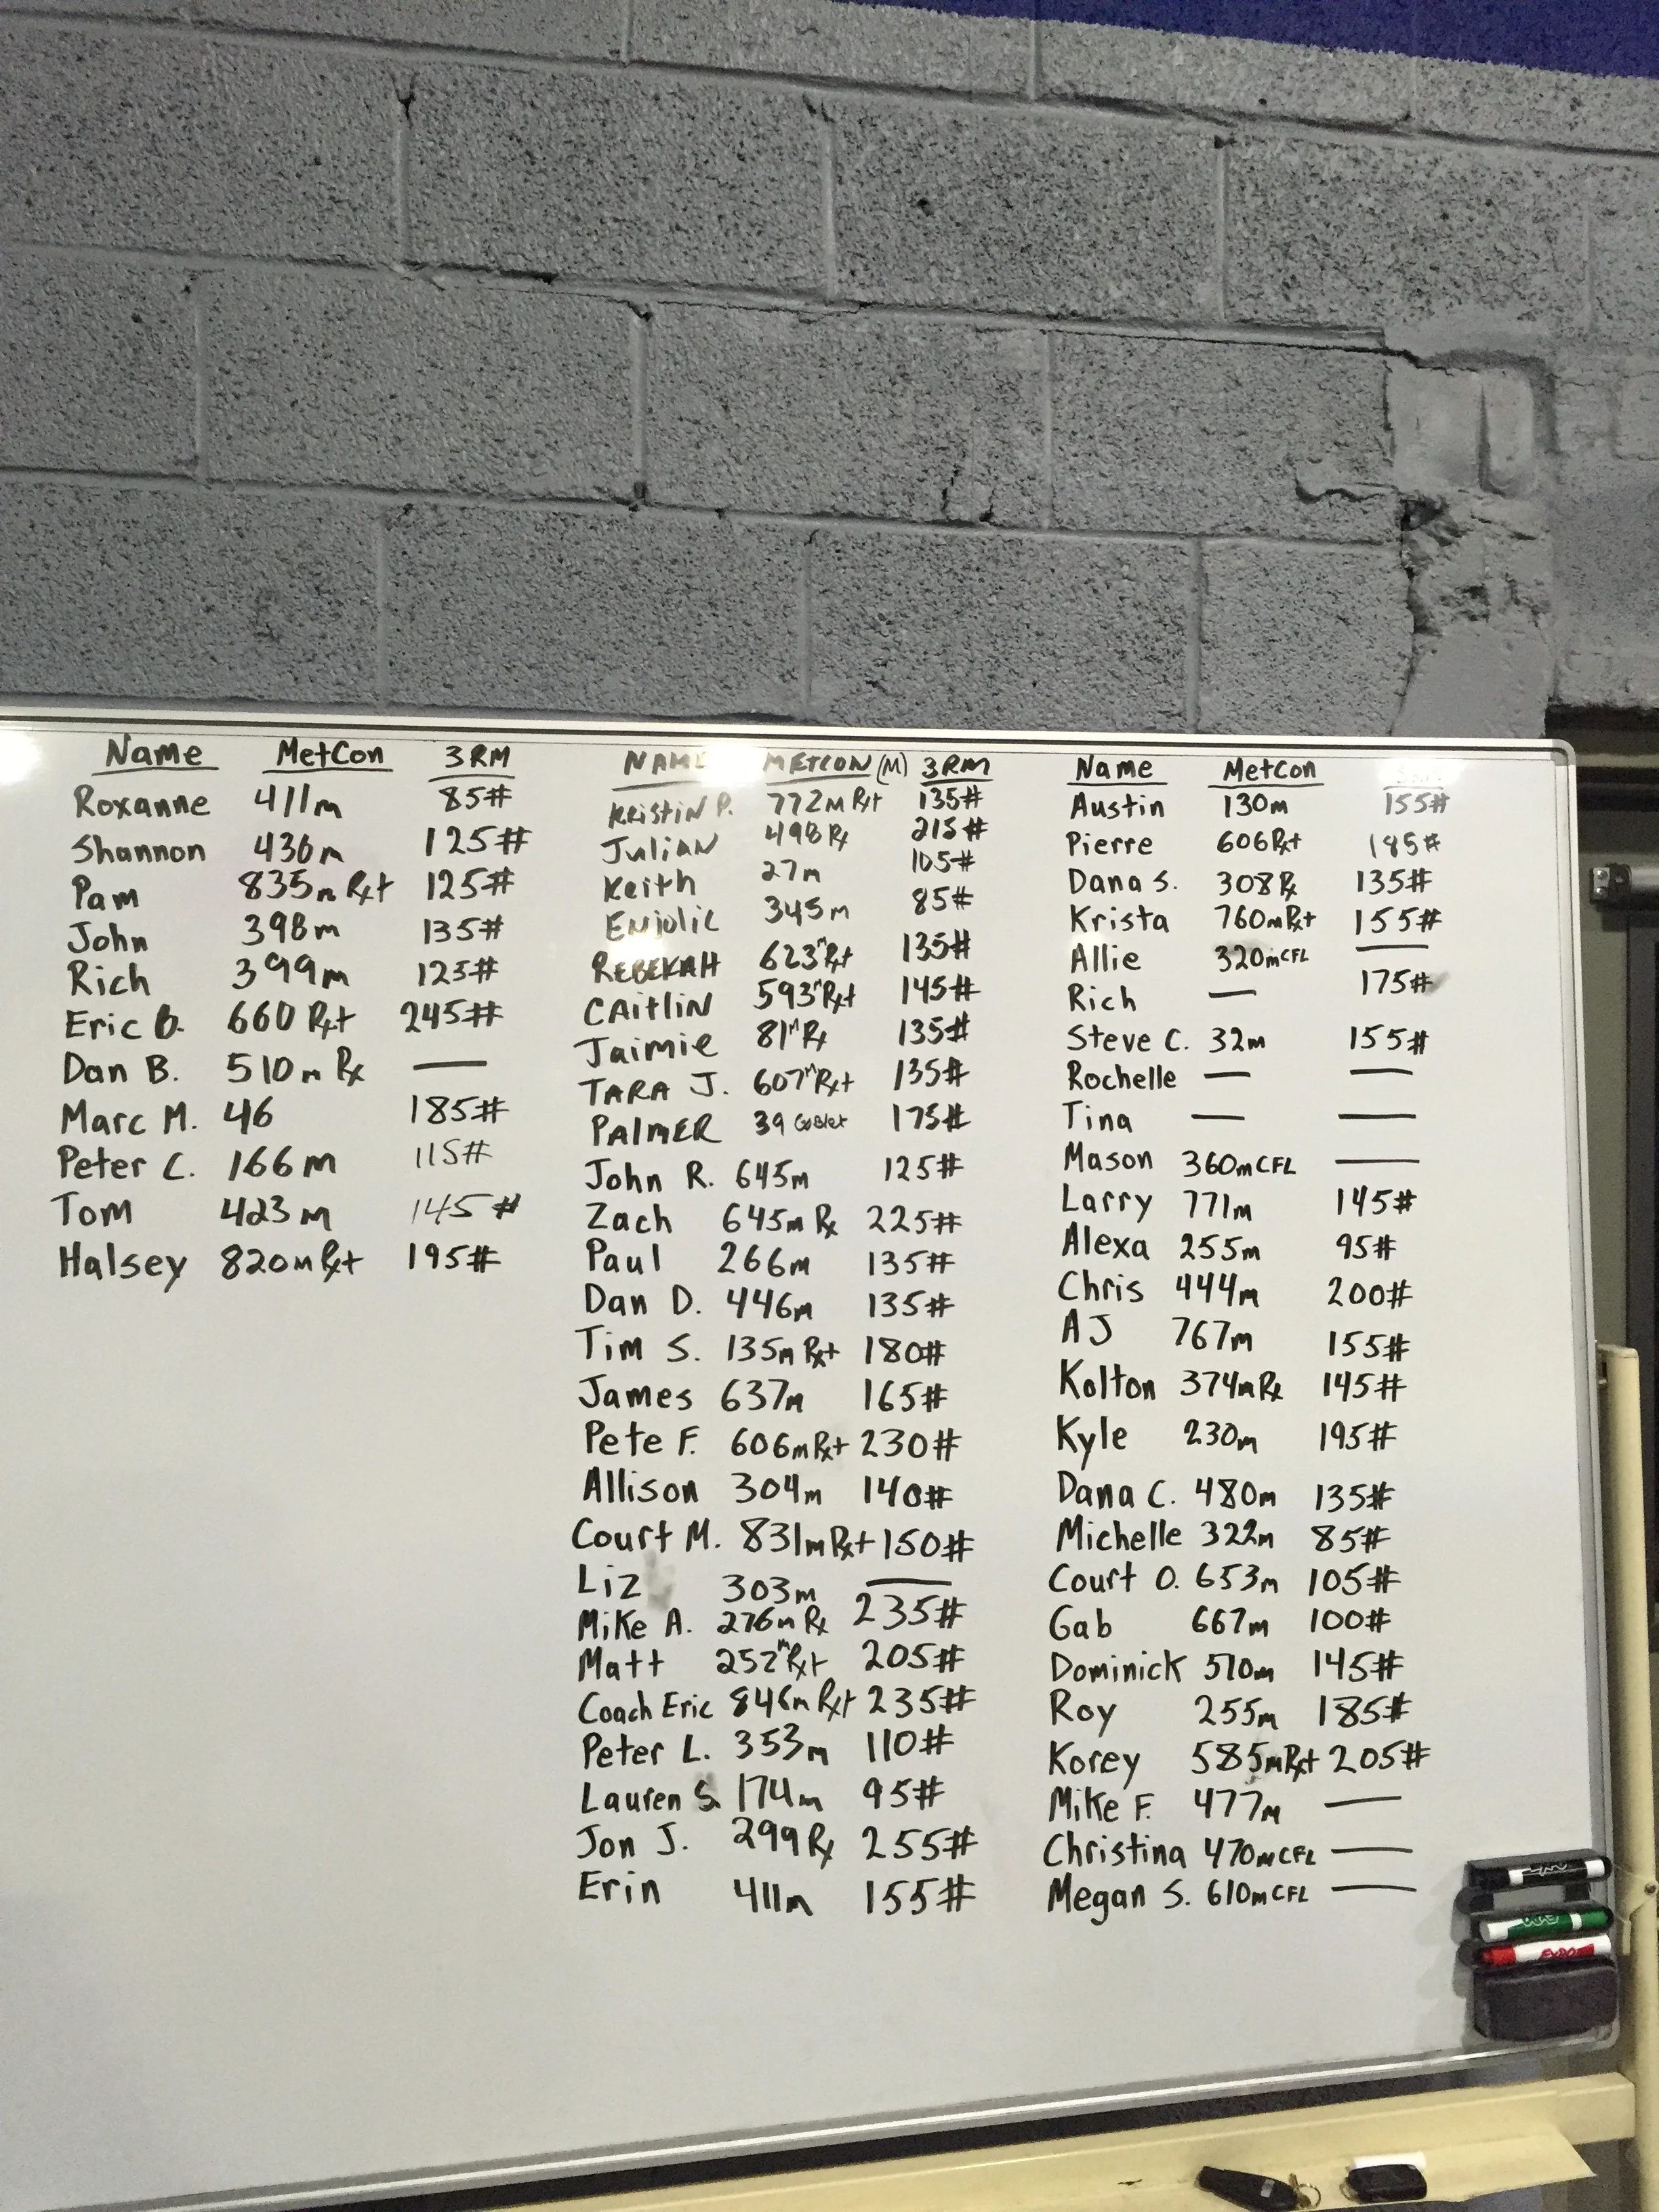 Name MetCon 3RM
Roxanne 411m 85#
Shannon 436m 125#
Pam 835m Rx+ 125#
John 398m 135#
Rich 399m 125#
Eric B. 660 Rx+ 245#
Dan B. 510m Rx —
Marc M. 46 185#
Peter C. 166m 115#
Tom 423m 145#
Halsey 820m Rx+ 195#
NAME METCON (M) 3RM
Kristin P. 772m Rx+ 135#
Julian 498 Rx 215#
Keith 27m 105#
Enjolic 345m 85#
REBEKAH 623m Rx+ 135#
CAITLIN 593m Rx+ 145#
Jaimie 81m Rx 135#
TARA J. 607m Rx+ 135#
PALMER 39 Goblet 175#
John R. 645m 125#
Zach 645m Rx 225#
Paul 266m 135#
Dan D. 446m 135#
Tim S. 135m Rx+ 180#
James 637m 165#
Pete F. 606m Rx+ 230#
Allison 304m 140#
Court M. 831m Rx+ 150#
Liz 303m —
Mike A. 276m Rx 235#
Matt 252m Rx+ 205#
Coach Eric 846m Rx+ 235#
Peter L. 353m 110#
Lauren S. 174m 95#
Jon J. 299 Rx 255#
Erin 411m 155#
Name MetCon
Austin 130m 155#
Pierre 606 Rx+ 185#
Dana S. 308 Rx 135#
Krista 760m Rx+ 155#
Allie 320m CFL —
Rich — 175#
Steve C. 32m 155#
Rochelle — —
Tina — —
Mason 360m CFL —
Larry 771m 145#
Alexa 255m 95#
Chris 444m 200#
AJ 767m 155#
Kolton 374m Rx 145#
Kyle 230m 195#
Dana C. 480m 135#
Michelle 322m 85#
Court O. 653m 105#
Gab 667m 100#
Dominick 510m 145#
Roy 255m 185#
Korey 585m Rx+ 205#
Mike F. 477m —
Christina 470m CFL —
Megan S. 610m CFL —
EXPO